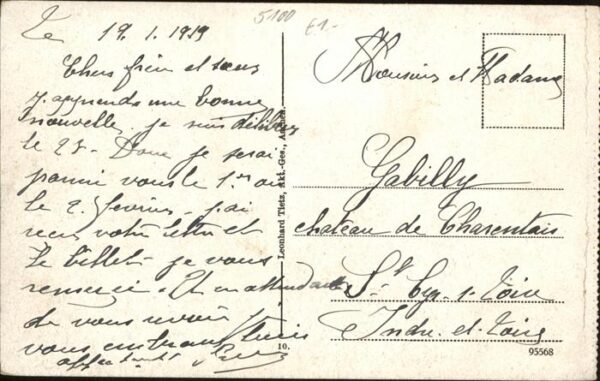 5100
£1.-
Le 19. 1. 1919
Chers frère et sœur
j'apprends une bonne
nouvelle, je suis
le 25. Donc je serai
parmi vous le 1er ou
le 2 février, j'ai
recu votre lettre et
le billet je vous
remercie. Et en attendant
de vous revoir
vous
Monsieur et Madame
Gabilly
chateau de Charentais
St Cyr s Loire
Indre et Loire
Leonhard Tietz, Akt.-Ges., Aachen.
10.
95568